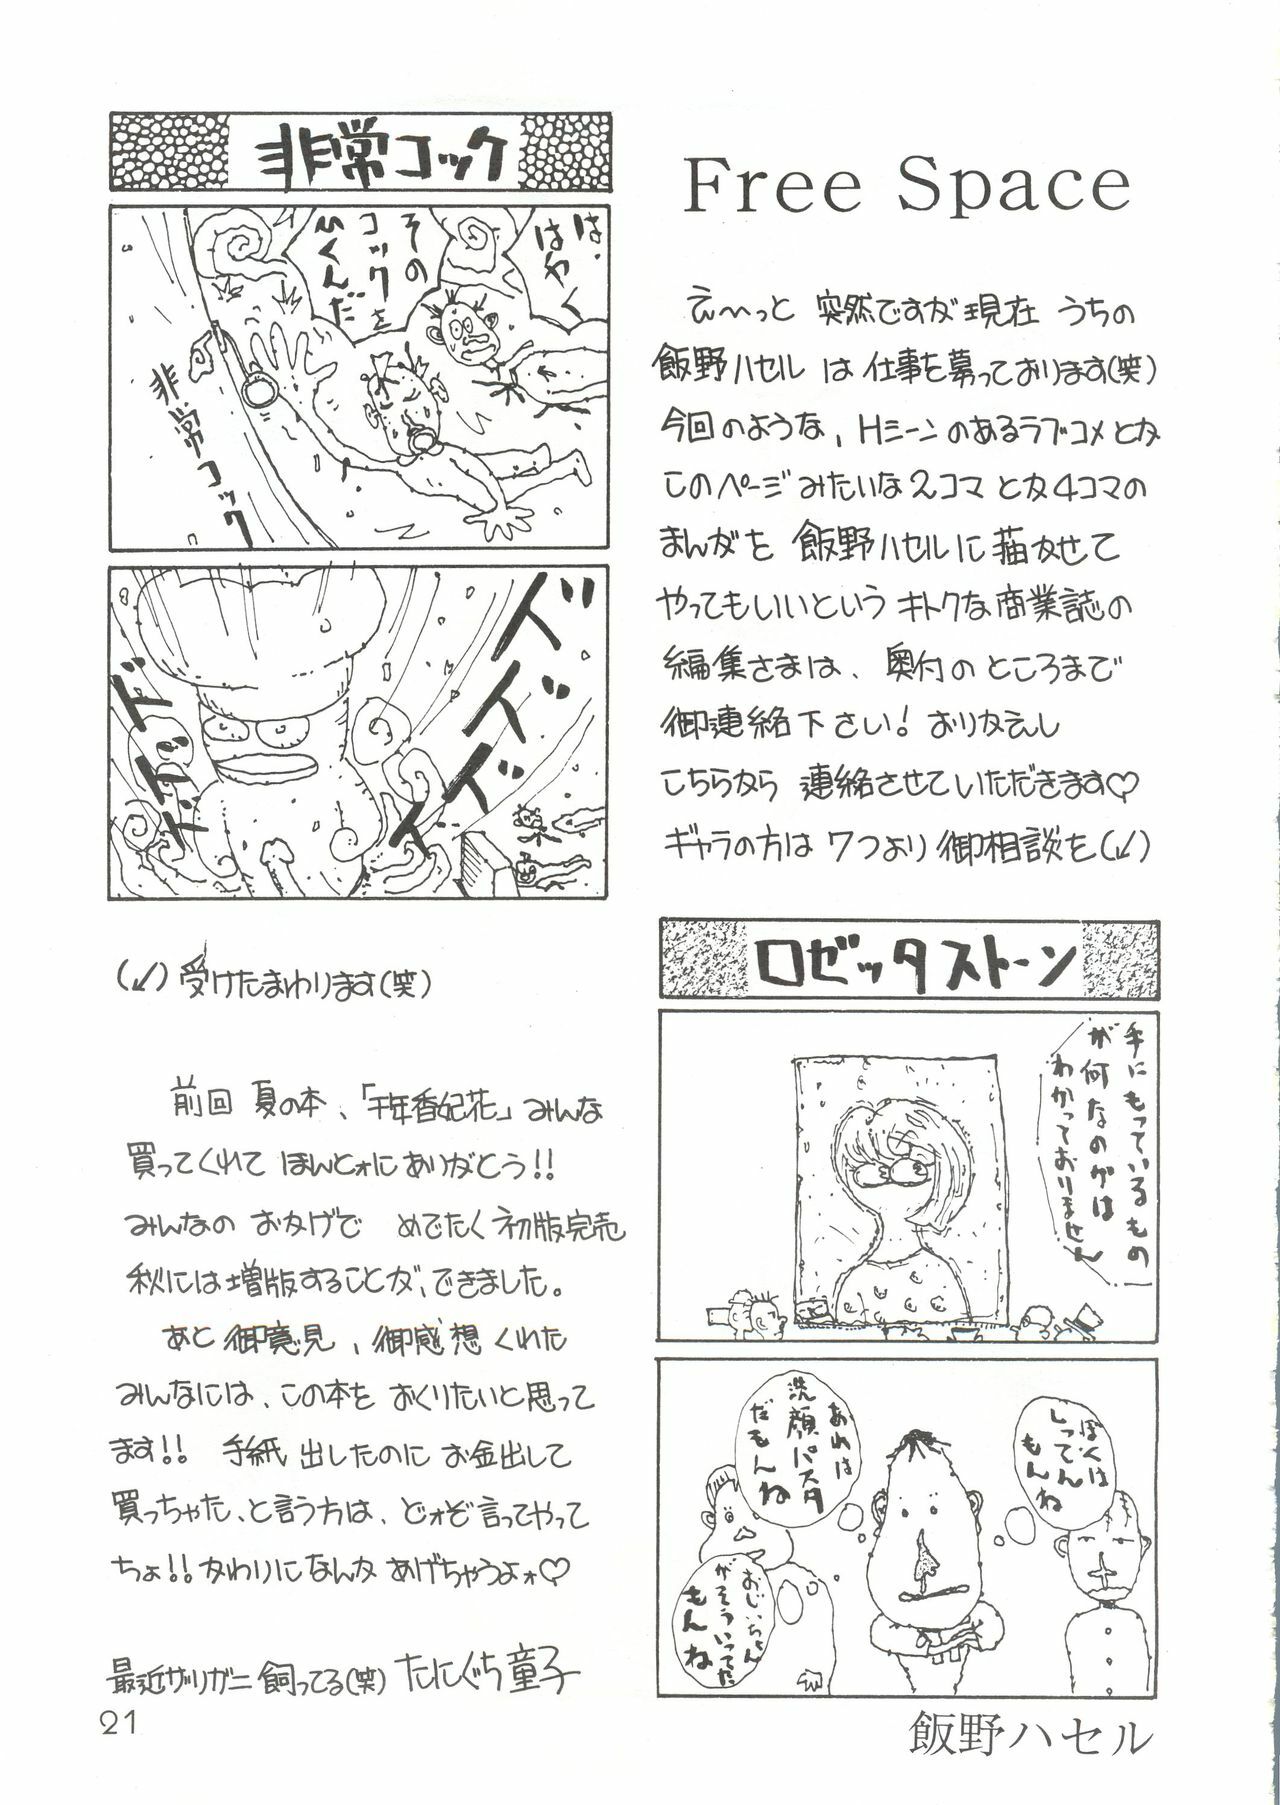 Free Space
えーっと 突然ですが現在 うちの
飯野ハセル は 仕事を募っております(笑)
今回のような、Hシーンのあるラブコメとか
このページみたいな2コマとか4コマの
まんがを 飯野ハセルに描かせて
やってもいいという キトクな商業誌の
編集さまは、奥付のところまで
御連絡下さい! おりかえし
こちらから 連絡させていただきます♡
ギャラの方は 7つより 御相談を(↙)
ロゼッタストーン
手にもっているもの
が何なのかは
わかっておりません
ぼくは
しってん
もんね
あれは
洗顔パスタ
だもんね
おじいちゃん
がそういってた
もんね
飯野ハセル
非常コック
は、
はやく
その
コックを
ひくんだ
非常コック
ドドドド
ドドドド
(↙)受けたまわります(笑)
前回 夏の本、「千年香妃花」みんな
買ってくれて ほんとォにありがとう!!
みんなの おかげで めでたく初版完売
秋には増版することが、できました。
あと 御意見、御感想 くれた
みんなには、この本を おくりたいと思って
ます!! 手紙 出したのに お金出して
買っちゃた、と言う方は、どォぞ言ってやって
ちょ!! かわりになんか あげちゃうよォ♡
最近ザリガニ 飼ってる(笑) たにぐち童子
21